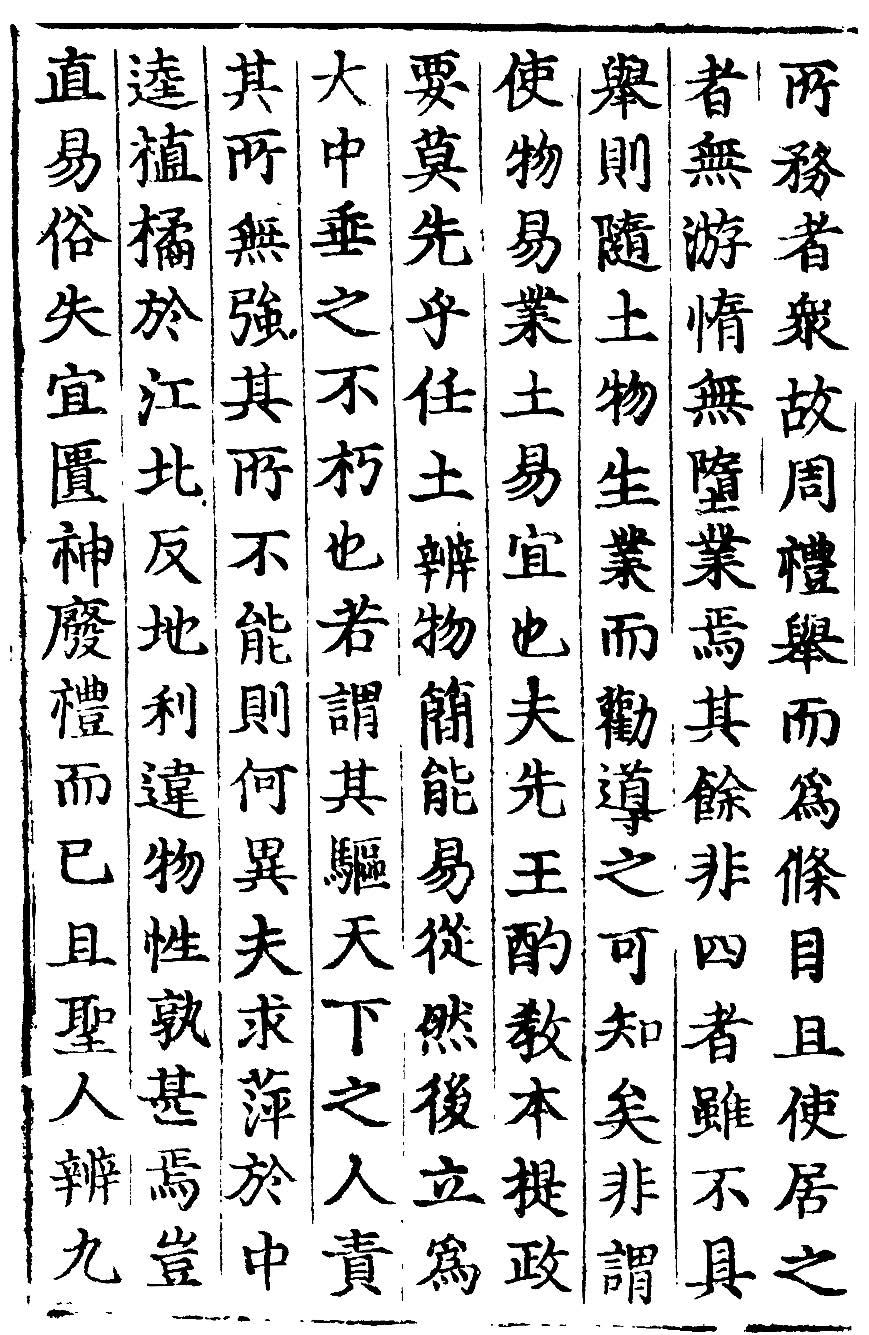 所務者衆故周禮舉而爲條目且使居之
者無游惰無墮業焉其餘非四者雖不具
舉則隨土物生業而勸導之可知矣非謂
使物易業土易宜也夫先王酌教本提政
要莫先乎任土辨物簡能易從然後立爲
大中垂之不朽也若謂其驅天下之人責
其所無強其所不能則何異夫求萍於中
逵植橘於江北反地利違物性孰甚焉豈
直易俗失宜匱神廢禮而已且聖人辨九